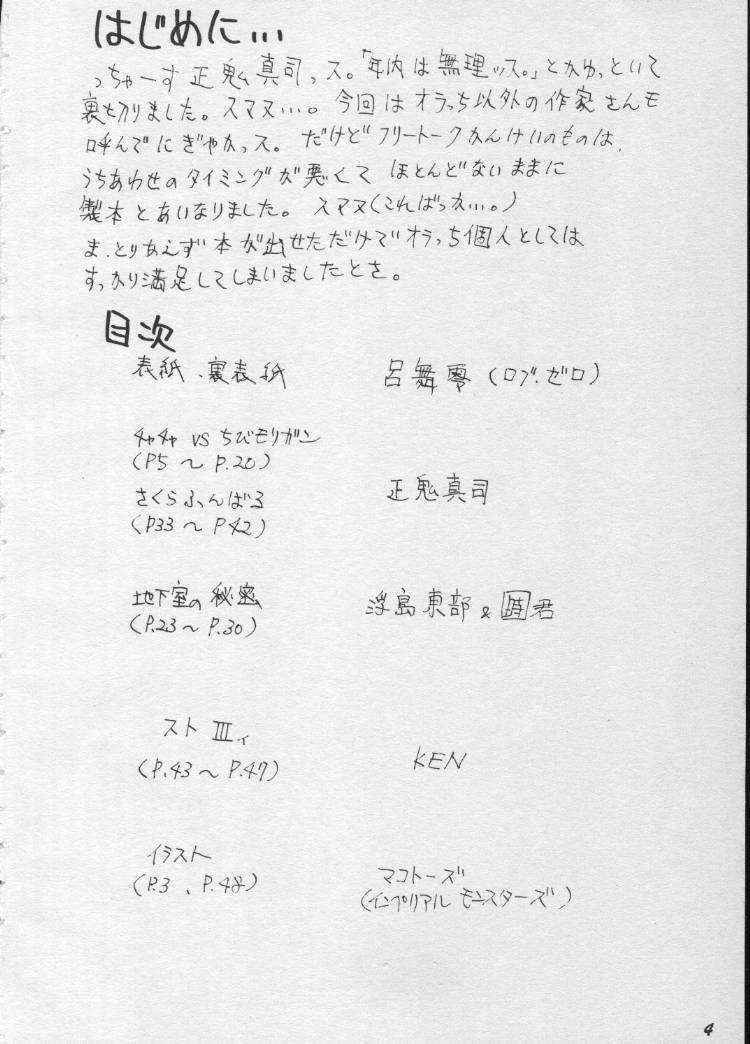 はじめに…
っちゃーす正鬼真司っス。「年内は無理ッス。」とかゆっといて
裏切りました。スマヌ…。今回はオラっち以外の作家さんモ
呼んでにぎやかっス。だけどフリートークかんけいのものは、
うちあわせのタイミングが悪くてほとんどないままに
製本とあいなりました。スマヌ(こればっかし…。)
ま、とりあえず本が出せただけでオラっち個人としては
すっかり満足してしまいましたとさ。
目次
表紙、裏表紙 呂舞零(ロブ・ゼロ)
チャチャ VS ちびモリガン
(P5 〜 P.20)
さくらふんばる 正鬼真司
(P33 〜 P42)
地下室の秘密 浮島東部 & 君
(P.23 〜 P.30)
スト III
(P.43 〜 P.47) KEN
イラスト
(P.3 、P.48) マコトーズ
(インペリアル モンスターズ)
4